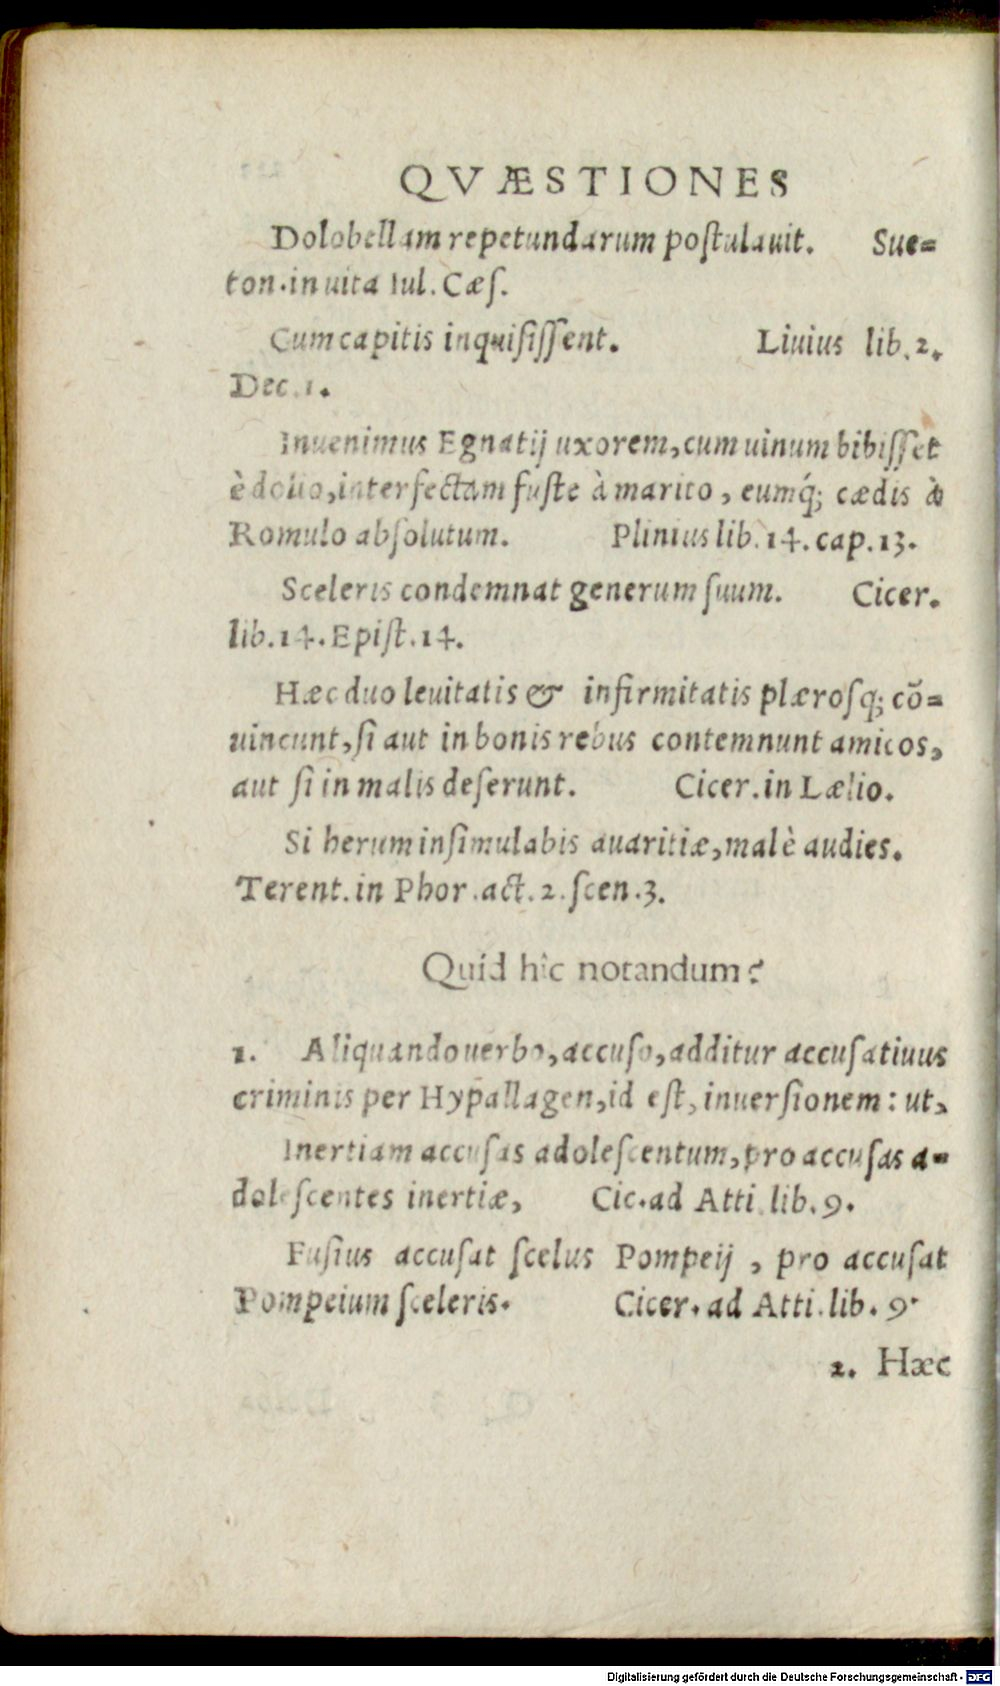 QVÆSTIONES
Dolobellam repetundarum poſtulauit. Sue=
ton. in uita Iul. Cæſ.
Cum capitis inquiſiſſent. Liuius lib. 2.
Dec. 1.
Inuenimus Egnatij uxorem, cum uinum bibiſſet
è dolio, interfectam fuſte à marito, eumq́; cædis à
Romulo abſolutum. Plinius lib. 14. cap. 13.
Sceleris condemnat generum ſuum. Cicer.
lib. 14. Epiſt. 14.
Hæc duo leuitatis & infirmitatis plæroſq; cō=
uincunt, ſi aut in bonis rebus contemnunt amicos,
aut ſi in malis deſerunt. Cicer. in Lælio.
Si herum inſimulabis auaritiæ, malè audies.
Terent. in Phor. act. 2. ſcen. 3.
Quid hîc notandum?
1. Aliquando uerbo, accuſo, additur accuſatiuus
criminis per Hypallagen, id eſt, inuerſionem: ut,
Inertiam accuſas adoleſcentum, pro accuſas a=
doleſcentes inertiæ, Cic. ad Atti. lib. 9.
Fuſius accuſat ſcelus Pompeij, pro accuſat
Pompeium ſceleris. Cicer. ad Atti. lib. 9.
2. Hæc
Digitalisierung gefördert durch die Deutsche Forschungsgemeinschaft - DFG